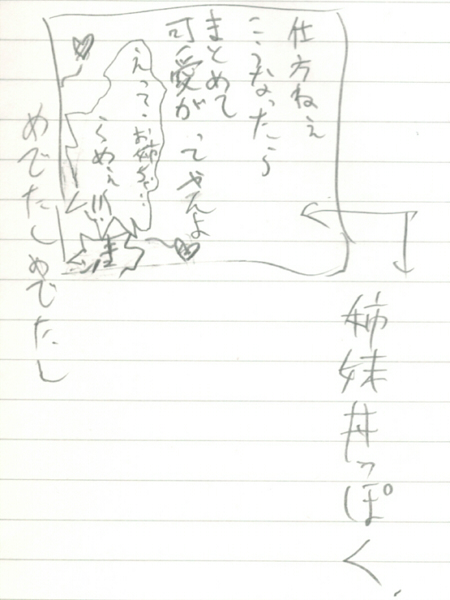 仕方ねぇ
こうなったら
まとめて
可愛がってやんよ
えっ、お姉ちゃ…
らめぇ!!!
めでたしめでたし
姉妹丼っぽく